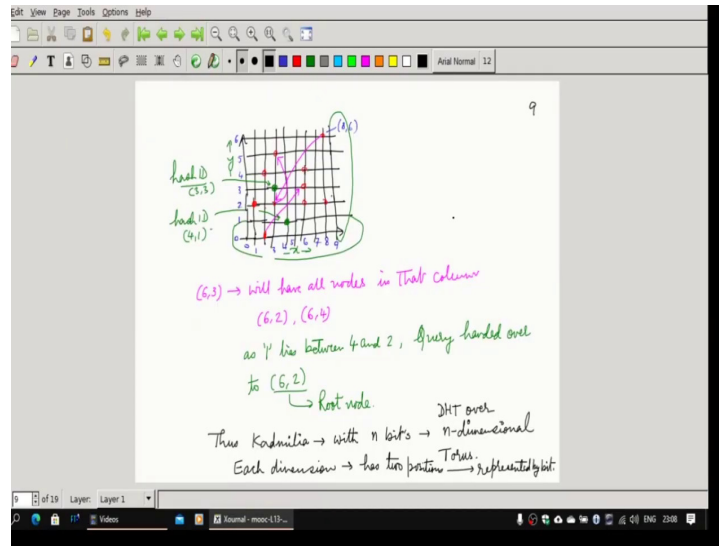 Edit View Page Tools Options Help
T
Arial Normal 12
9
(8,6)
6
5
4
3
2
1
0
y
0 1 3 4 5 6 7 8 9
x
hash ID
(3,3)
hash ID
(4,1)
(6,3) → will have all nodes in that column
(6,2), (6,4)
as '1' lies between 4 and 2, Query handed over
to (6,2)
Root node.
DHT over
Thus Kadmilia → with n bits → n-dimensional
Torus.
Each dimension → has two portions → represented by bit.
9 of 19 Layer: Layer 1
Videos
Xournal - mooc-L13-...
ENG 23:08